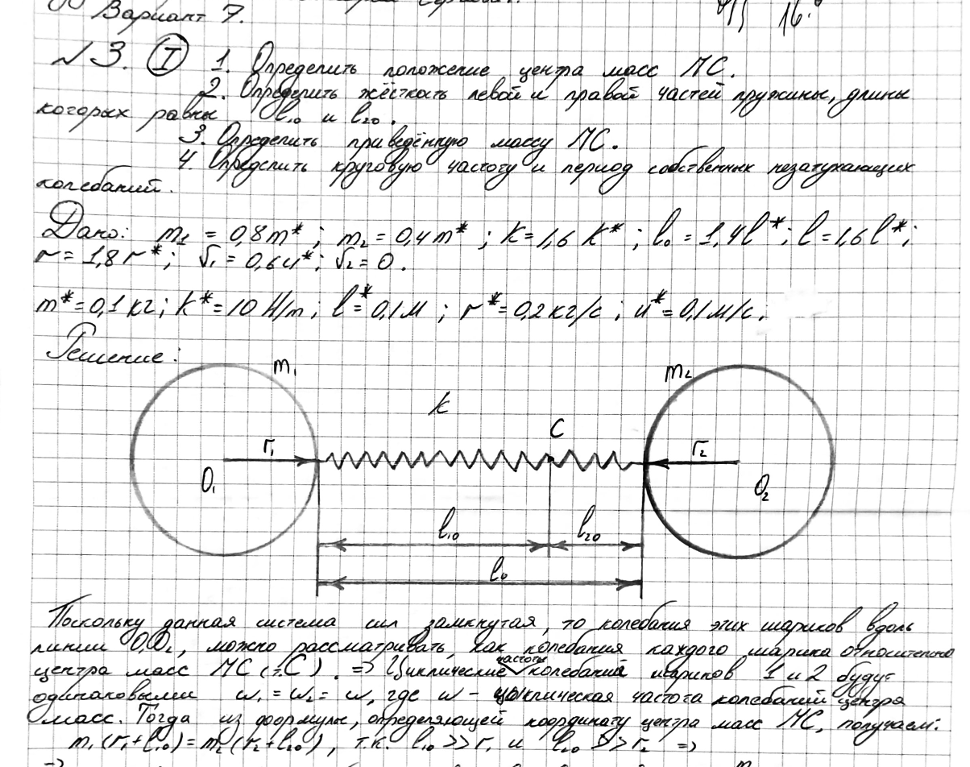 Вариант 7.
№3. (I) 1. Определить положение центра масс МС.
2. Определить жёсткость левой и правой частей пружины, длины
которых равны l₁₀ и l₂₀.
3. Определить приведённую массу МС.
4. Определить круговую частоту и период собственных незатухающих
колебаний.
Дано: m₁ = 0,8m*; m₂ = 0,4m*; k = 1,6 k*; l₀ = 1,4l*; l = 1,6l*;
r = 1,8r*; v₁ = 0,6u*; v₂ = 0.
m* = 0,1 кг; k* = 10 Н/m; l* = 0,1м; r* = 0,2кг/с; u* = 0,1м/с;
Решение:
m₁ m₂
k
C
r₁ r₂
O₁ O₂
l₁₀ l₂₀
l₀
Поскольку данная система сил замкнутая, то колебания этих шариков вдоль
линии O₁O₂, можно рассматривать, как колебания каждого шарика относительно
центра масс МС (т.С). => Циклические частоты колебаний шариков 1 и 2 будут
одинаковыми ω₁ = ω₂ = ω, где ω - циклическая частота колебаний центра
масс. Тогда из формулы, определяющей координату центра масс МС, получаем:
m₁(r₁+l₁₀) = m₂(r₂+l₂₀), т.к. l₁₀ >> r₁ и l₂₀ >> r₂ =>